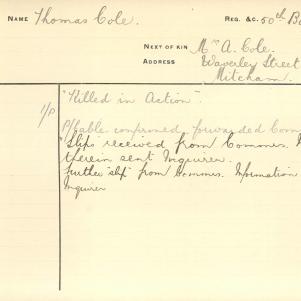 NAME Thomas Cole. REG. &c. 50th B
NEXT OF KIN Mrs A. Cole.
ADDRESS Waverley Street
Mitcham.
1/P "Killed in Action".
P/Cable confirmed, forwarded Com
"Slips" received from Commrs.
therein sent Inquirer.
further "slip" from Commrs. Information
Inquirer